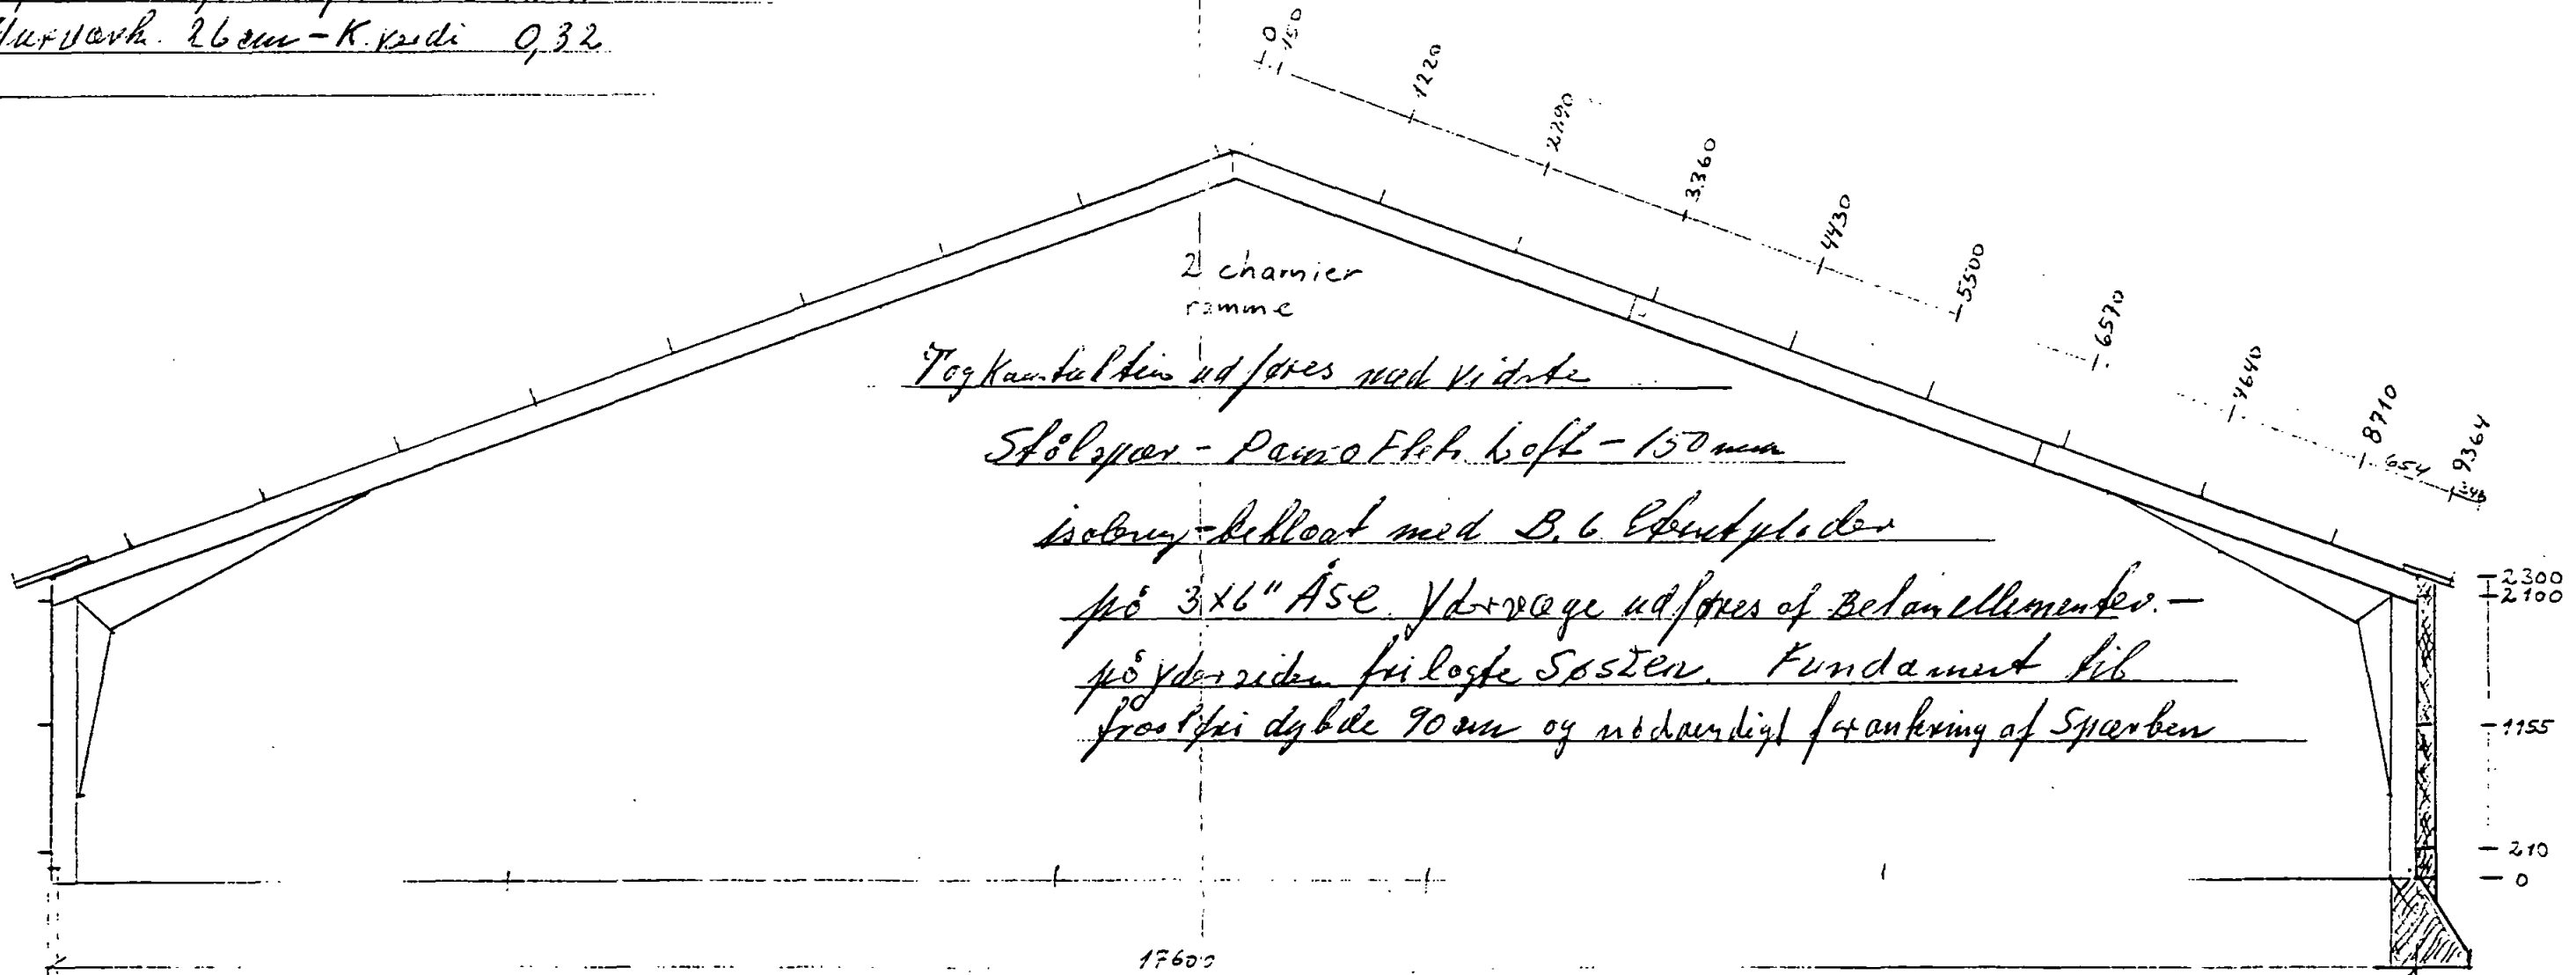 Murværk. 26 cm - K. værdi 0,32
0
150
1220
2290
3360
4430
5500
6570
7640
8710
654
9364
246
2 charnier
ramme
Tagkonstuktion udføres med vidste
Stålspær - Loft - 150 mm
isolering - beklædt med B. 6 Eternitplader
på 3x6" Åse. Ydervæge udføres af Betonellementer. -
på ydersiden frilagte Søsten. Fundament til
frostfri dybde 90 cm og nødvendigt forankring af Spærben
2300
2100
1155
210
0
17600